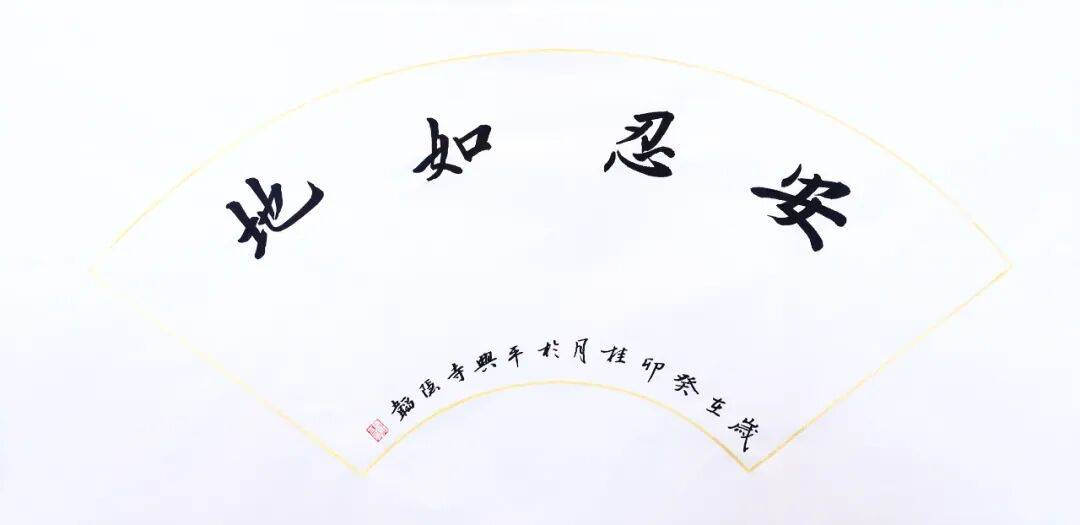 安忍如地
歲在癸卯桂月於平興寺隱韜